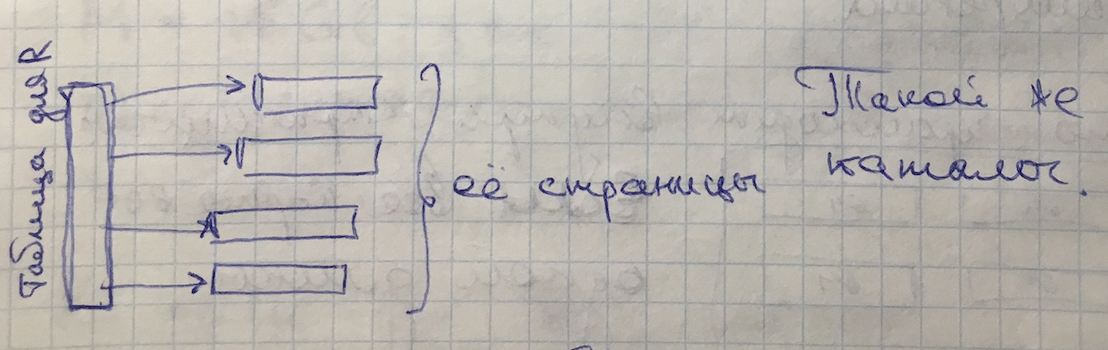 Таблица для R
её страницы
Такой же
каталог.